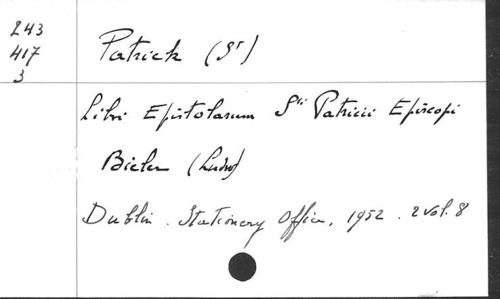 243
417
3
Patrick (St)
Libri Epistolarum Sti Patricii Episcopi
Bieler (Ludw)
Dublin. Stationery Office, 1952. 2 vol. 8